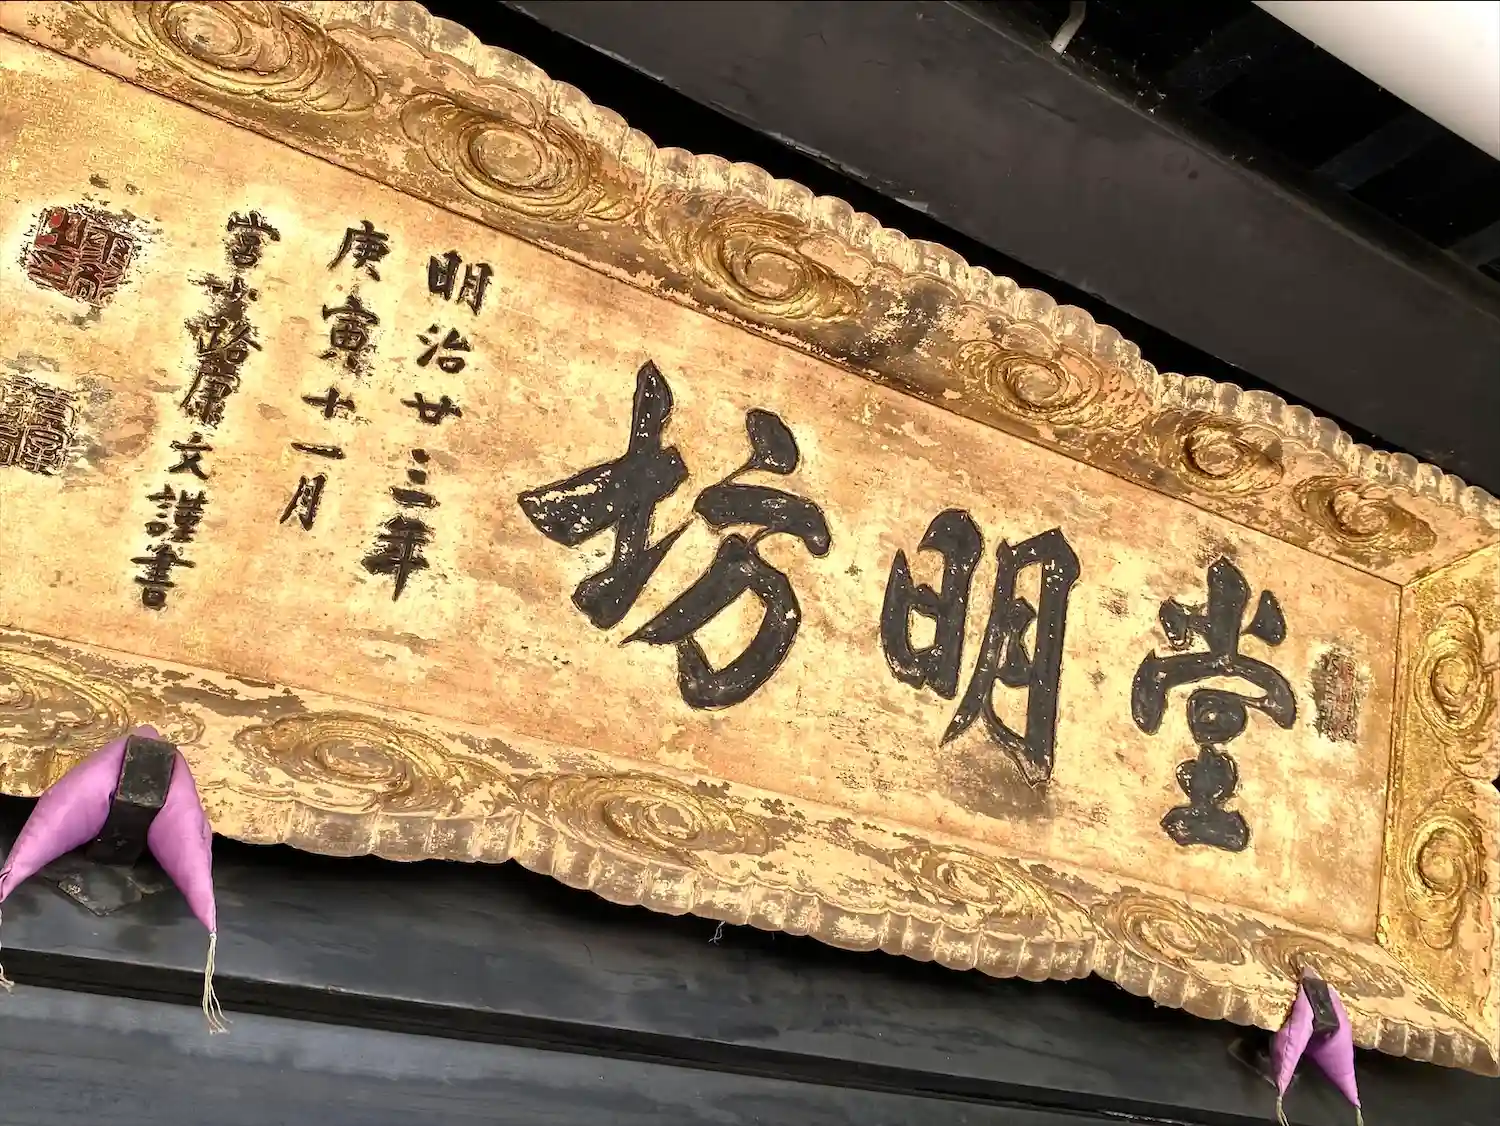 堂明坊
明治廿三年
庚寅十一月
當小路康文謹書